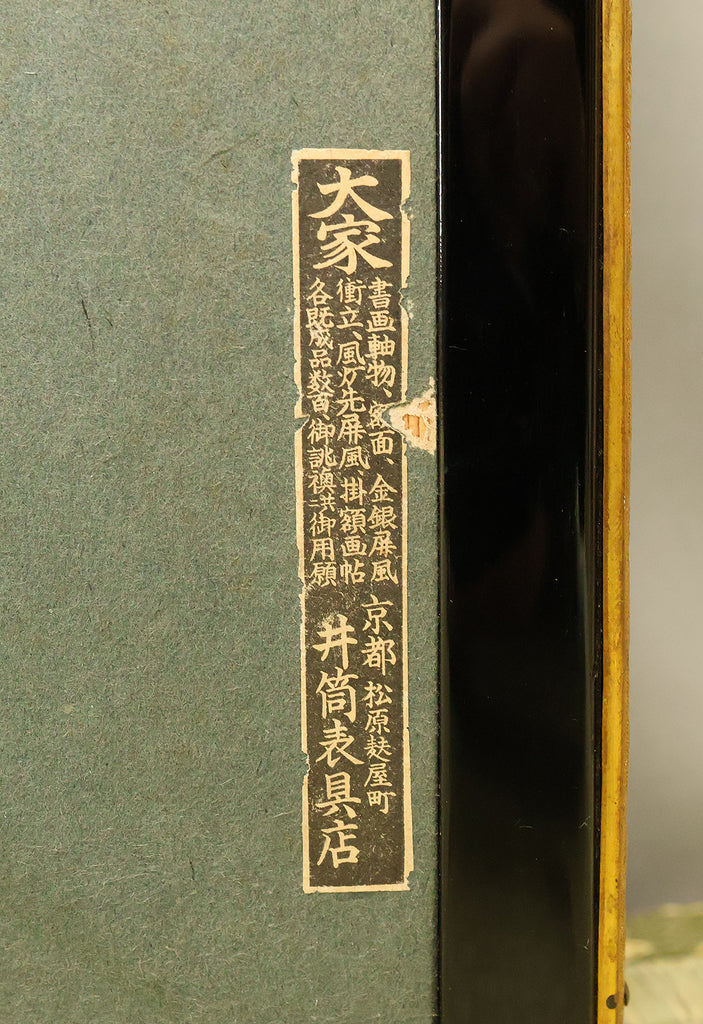 大家
書画軸物、面、金銀屏風
衝立、風炉先屏風、掛額画帖
各既成品数百、御誂襖共ニ御用願
京都 松原麩屋町
井筒表具店